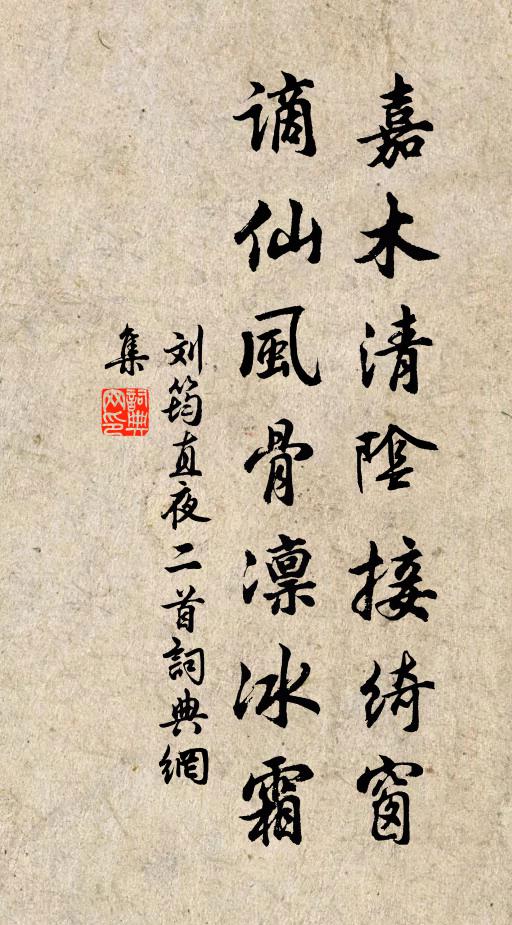 嘉木清陰接綺窗
谪仙風骨凛冰霜
刘筠直夜二首詞典網
集
詞典網印